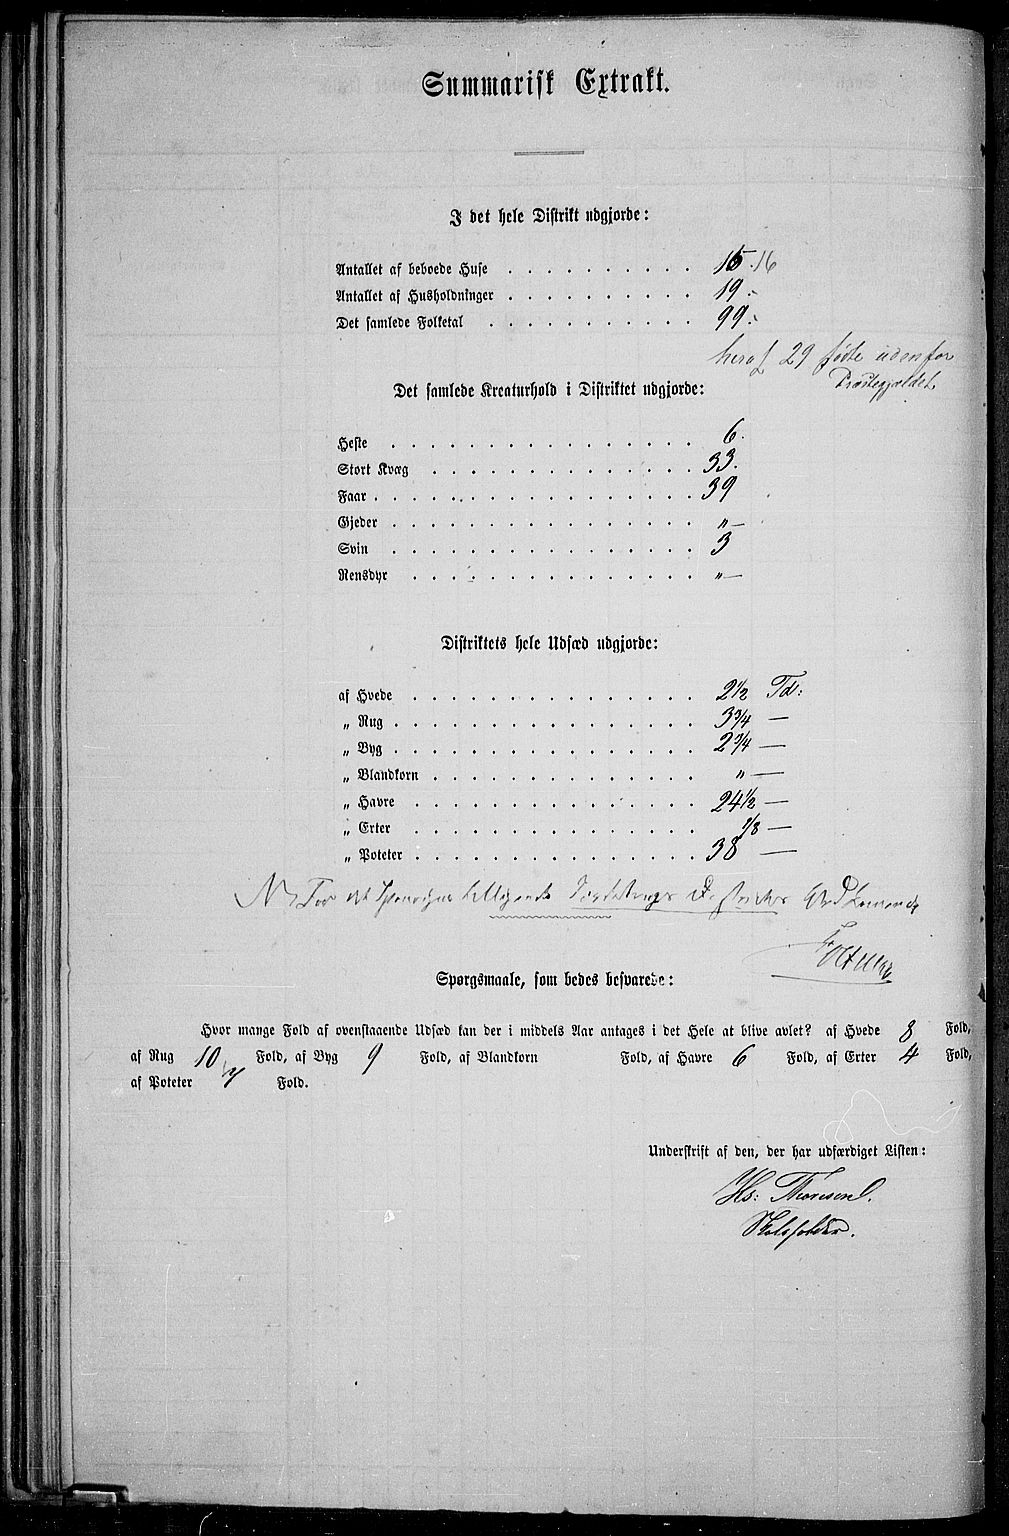 Summarisk Extrakt.
I det hele Distrikt udgjorde:
Antallet af beboede Huse . . . . . . . . . . 15. 16
Antallet af Husholdninger . . . . . . . . . . 19.
Det samlede Folketal . . . . . . . . . . 99.
heraf 29 fødte udenfor
Præstegjældet.
Det samlede Kreaturhold i Distriktet udgjorde:
Heste . . . . . . . . . . 6.
Stort Kvæg . . . . . . . . . . 33.
Faar . . . . . . . . . . 39
Gjeder . . . . . . . . . . „ —
Svin . . . . . . . . . . 3
Rensdyr . . . . . . . . . . „ —
Distriktets hele Udsæd udgjorde:
af Hvede . . . . . . . . . . 2 1/2 Td:
„ Rug . . . . . . . . . . 3 3/4 —
„ Byg . . . . . . . . . . 2 3/4 —
„ Blandkorn . . . . . . . . . . „ —
„ Havre . . . . . . . . . . 24 1/2 —
„ Erter . . . . . . . . . . 1/8 —
„ Poteter . . . . . . . . . . 38 —
Spørgsmaale, som bedes besvarede:
Hvor mange Fold af ovenstaaende Udsæd kan der i middels Aar antages i det Hele at blive avlet? af Hvede 8 Fold,
af Rug 10 Fold, af Byg 9 Fold, af Blandkorn Fold, af Havre 6 Fold, af Erter 4 Fold,
af Poteter 7 Fold.
Underskrift af den, der har udfærdiget Listen:
Hs: Thoresen.
Skoleholder.